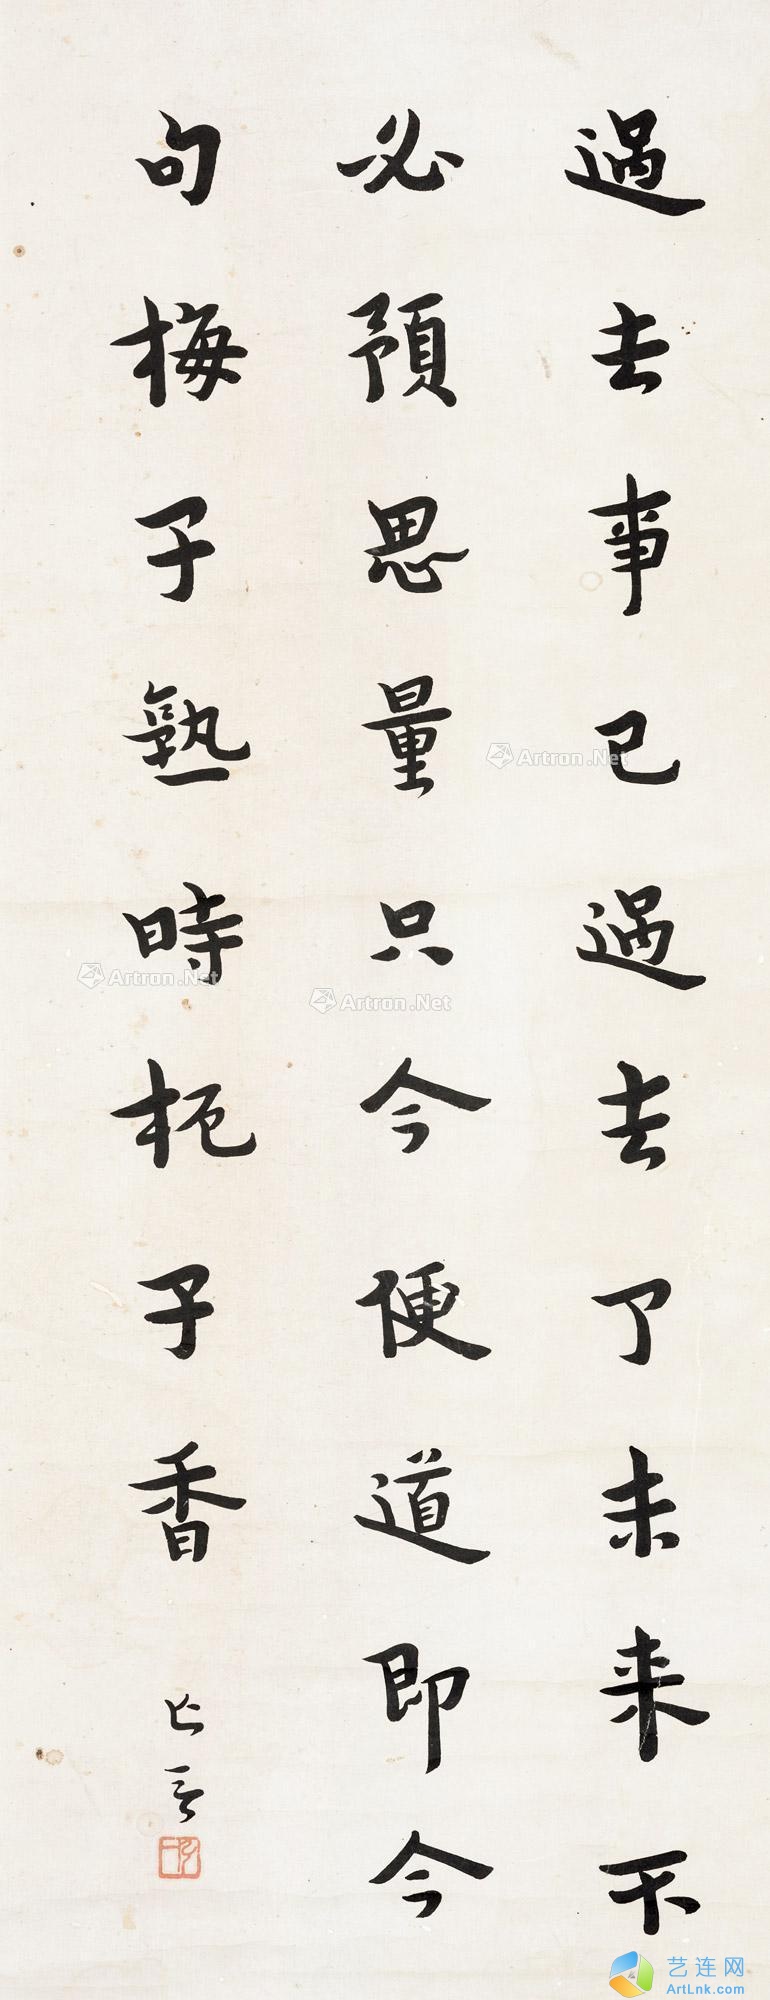 過去事已過去了未来不
必預思量只今便道即今
句梅子熟時栀子香
Artron.Net
Artron.Net
Artron.Net
艺连网
ArtLnk.com